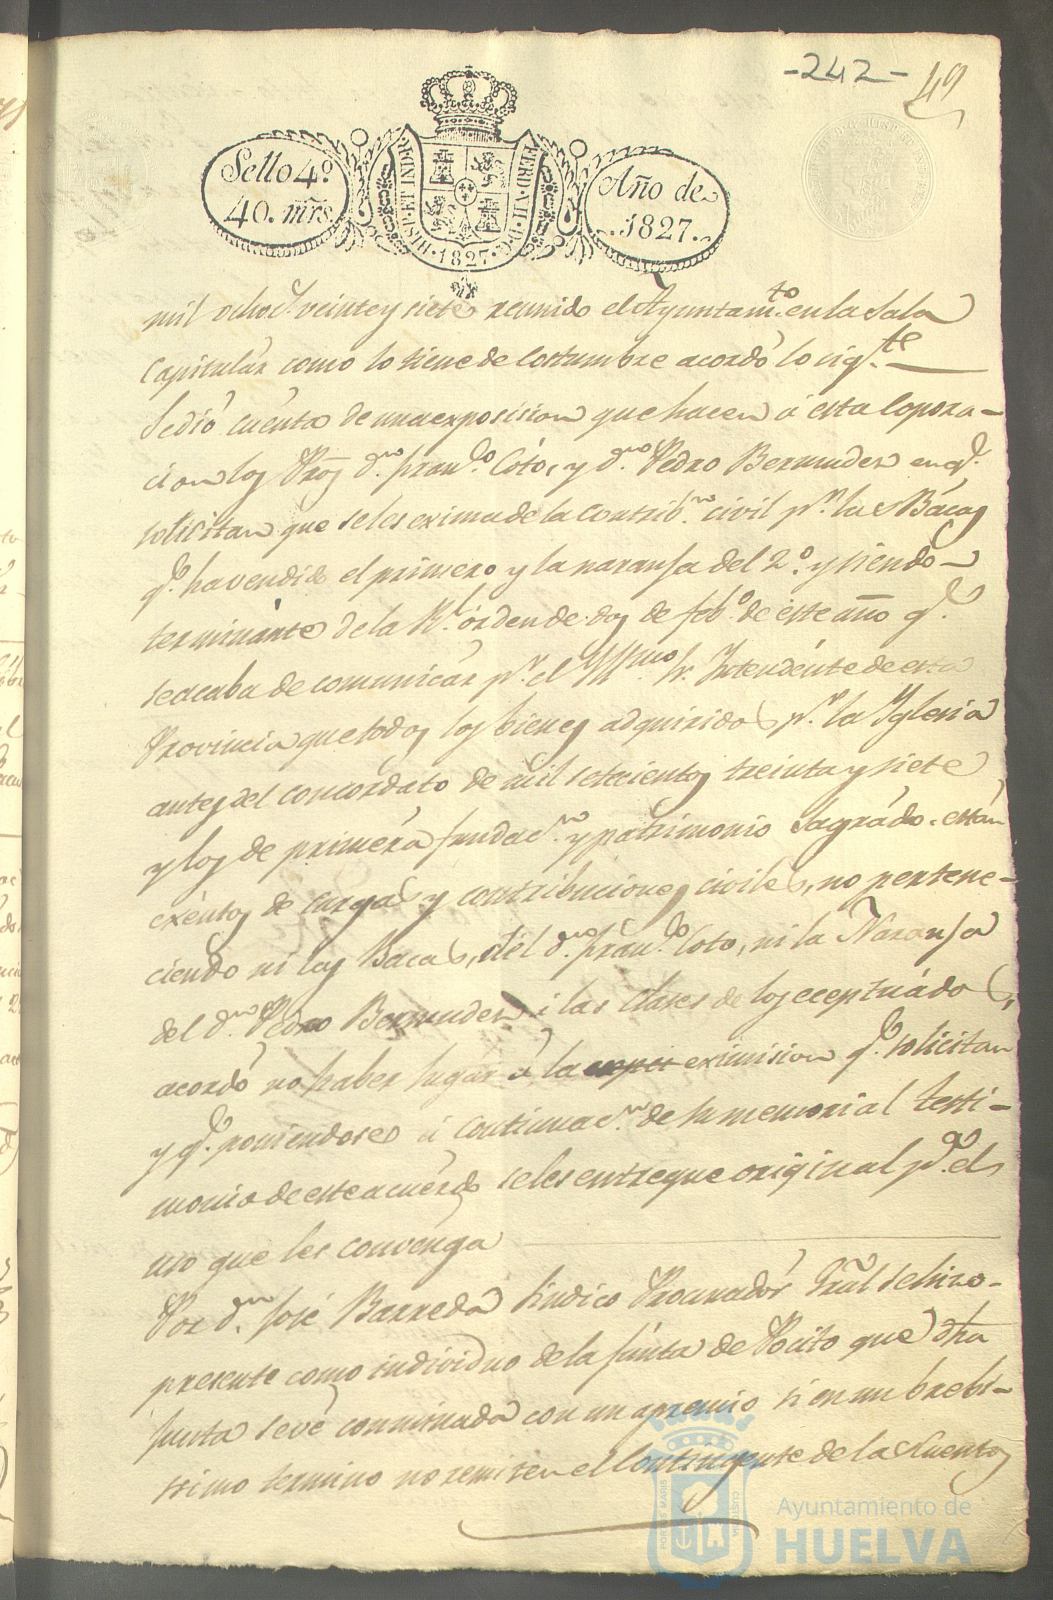 -242- 49
Sello 4º
40. mrs.
HISP. ET IND. R. FERD. VII. D. G.
.1827.
Año de
.1827.
mil ochoc.s veinte y siete reunido el Ayuntam.to en la Sala
Capitular como lo tiene de Costumbre acordó lo sig.te
Se dió cuenta de una exposision que hacen á esta Copora-
cion los Pros d.n fran.co Coto, y d.n Pedro Bermudez en q.e
solisitan que se les exima de la Contrib.n civil p.r las Bacas
q.e ha vendido el primero y la naransa del 2.º y siendo
terminante de la R.l órden de dos de feb.o de este año q.e
se acaba de comunicar p.r el Yll.mo Sr. Intendente de esta
Provincia que todos los bienes adquiridos p.r la Yglesia
antes del concordato de mil setecientos treinta y siete
y los de primera fundac.n y patrimonio Sagrado están
exéntos de cargas y contribuciones civiles, no pertene-
ciendo ni las Bacas, del d.n fran.co Coto, ni la Naransa
del d.n Pedro Bermudez á las Clases de los eceptuádos,
acordó no haber lugar á la eximision q.e solicitan
y q.e poniendose á continuac.n de su memorial testi-
monio de este acuerdo se les entregue original p.a el
uso que les convenga
Por d.n José Barreda Sindico Procurador Gral se hizo-
presente como individuo de la Junta de Pocito que dha
Junta se vé conminada con un apremio si en un brebi-
simo termino no remiten el Contingente de las Cuentas
PORTUS MARIS CUSTODIA
Ayuntamiento de
HUELVA